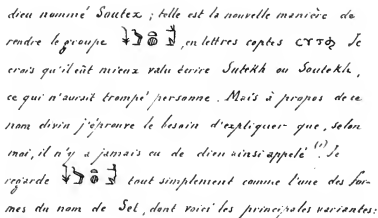 dieu nommé Soutex ; telle est la nouvelle manière de
rendre le groupe , en lettres coptes ⲥⲩⲧϧ Je
crois qu'il eût mieux valu écrire Sutekh ou Soutekh,
ce qui n'aurait trompé personne. Mais à propos de ce
nom divin j'éprouve le besoin d'expliquer que, selon
moi, il n'y a jamais eu de dieu ainsi appelé (1). Je
regarde tout simplement comme l'une des for-
mes du nom de Set, dont voici les principales variantes: